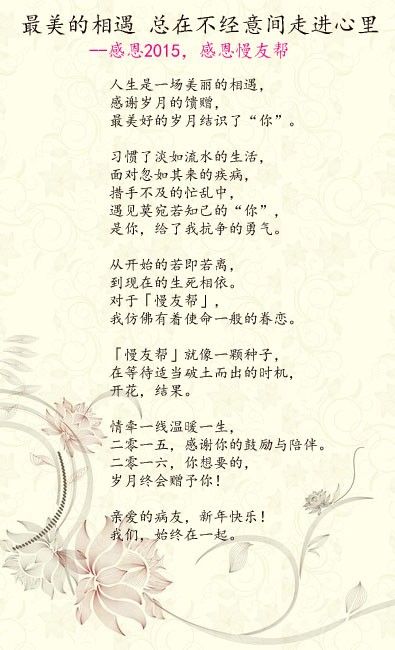 最美的相遇 总在不经意间走进心里
--感恩2015，感恩慢友帮
人生是一场美丽的相遇，
感谢岁月的馈赠，
最美好的岁月结识了“你”。
习惯了淡如流水的生活，
面对忽如其来的疾病，
措手不及的忙乱中，
遇见莫宛若知己的“你”，
是你，给了我抗争的勇气。
从开始的若即若离，
到现在的生死相依。
对于「慢友帮」，
我仿佛有着使命一般的眷恋。
「慢友帮」就像一颗种子，
在等待适当破土而出的时机，
开花，结果。
情牵一线温暖一生，
二零一五，感谢你的鼓励与陪伴。
二零一六，你想要的，
岁月终会赠予你！
亲爱的病友，新年快乐！
我们，始终在一起。